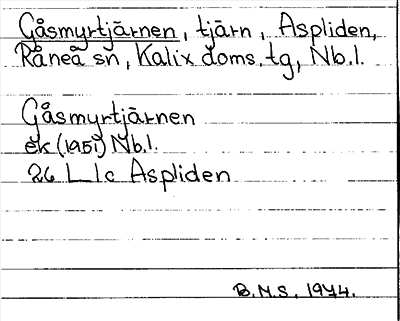 Gåsmyrtjärnen, tjärn, Aspliden,
Råneå sn, Kalix doms.tg, Nb.l.
Gåsmyrtjärnen
ek (1951) Nb.l.
26 L 1c Aspliden
B.M.S. 1974.